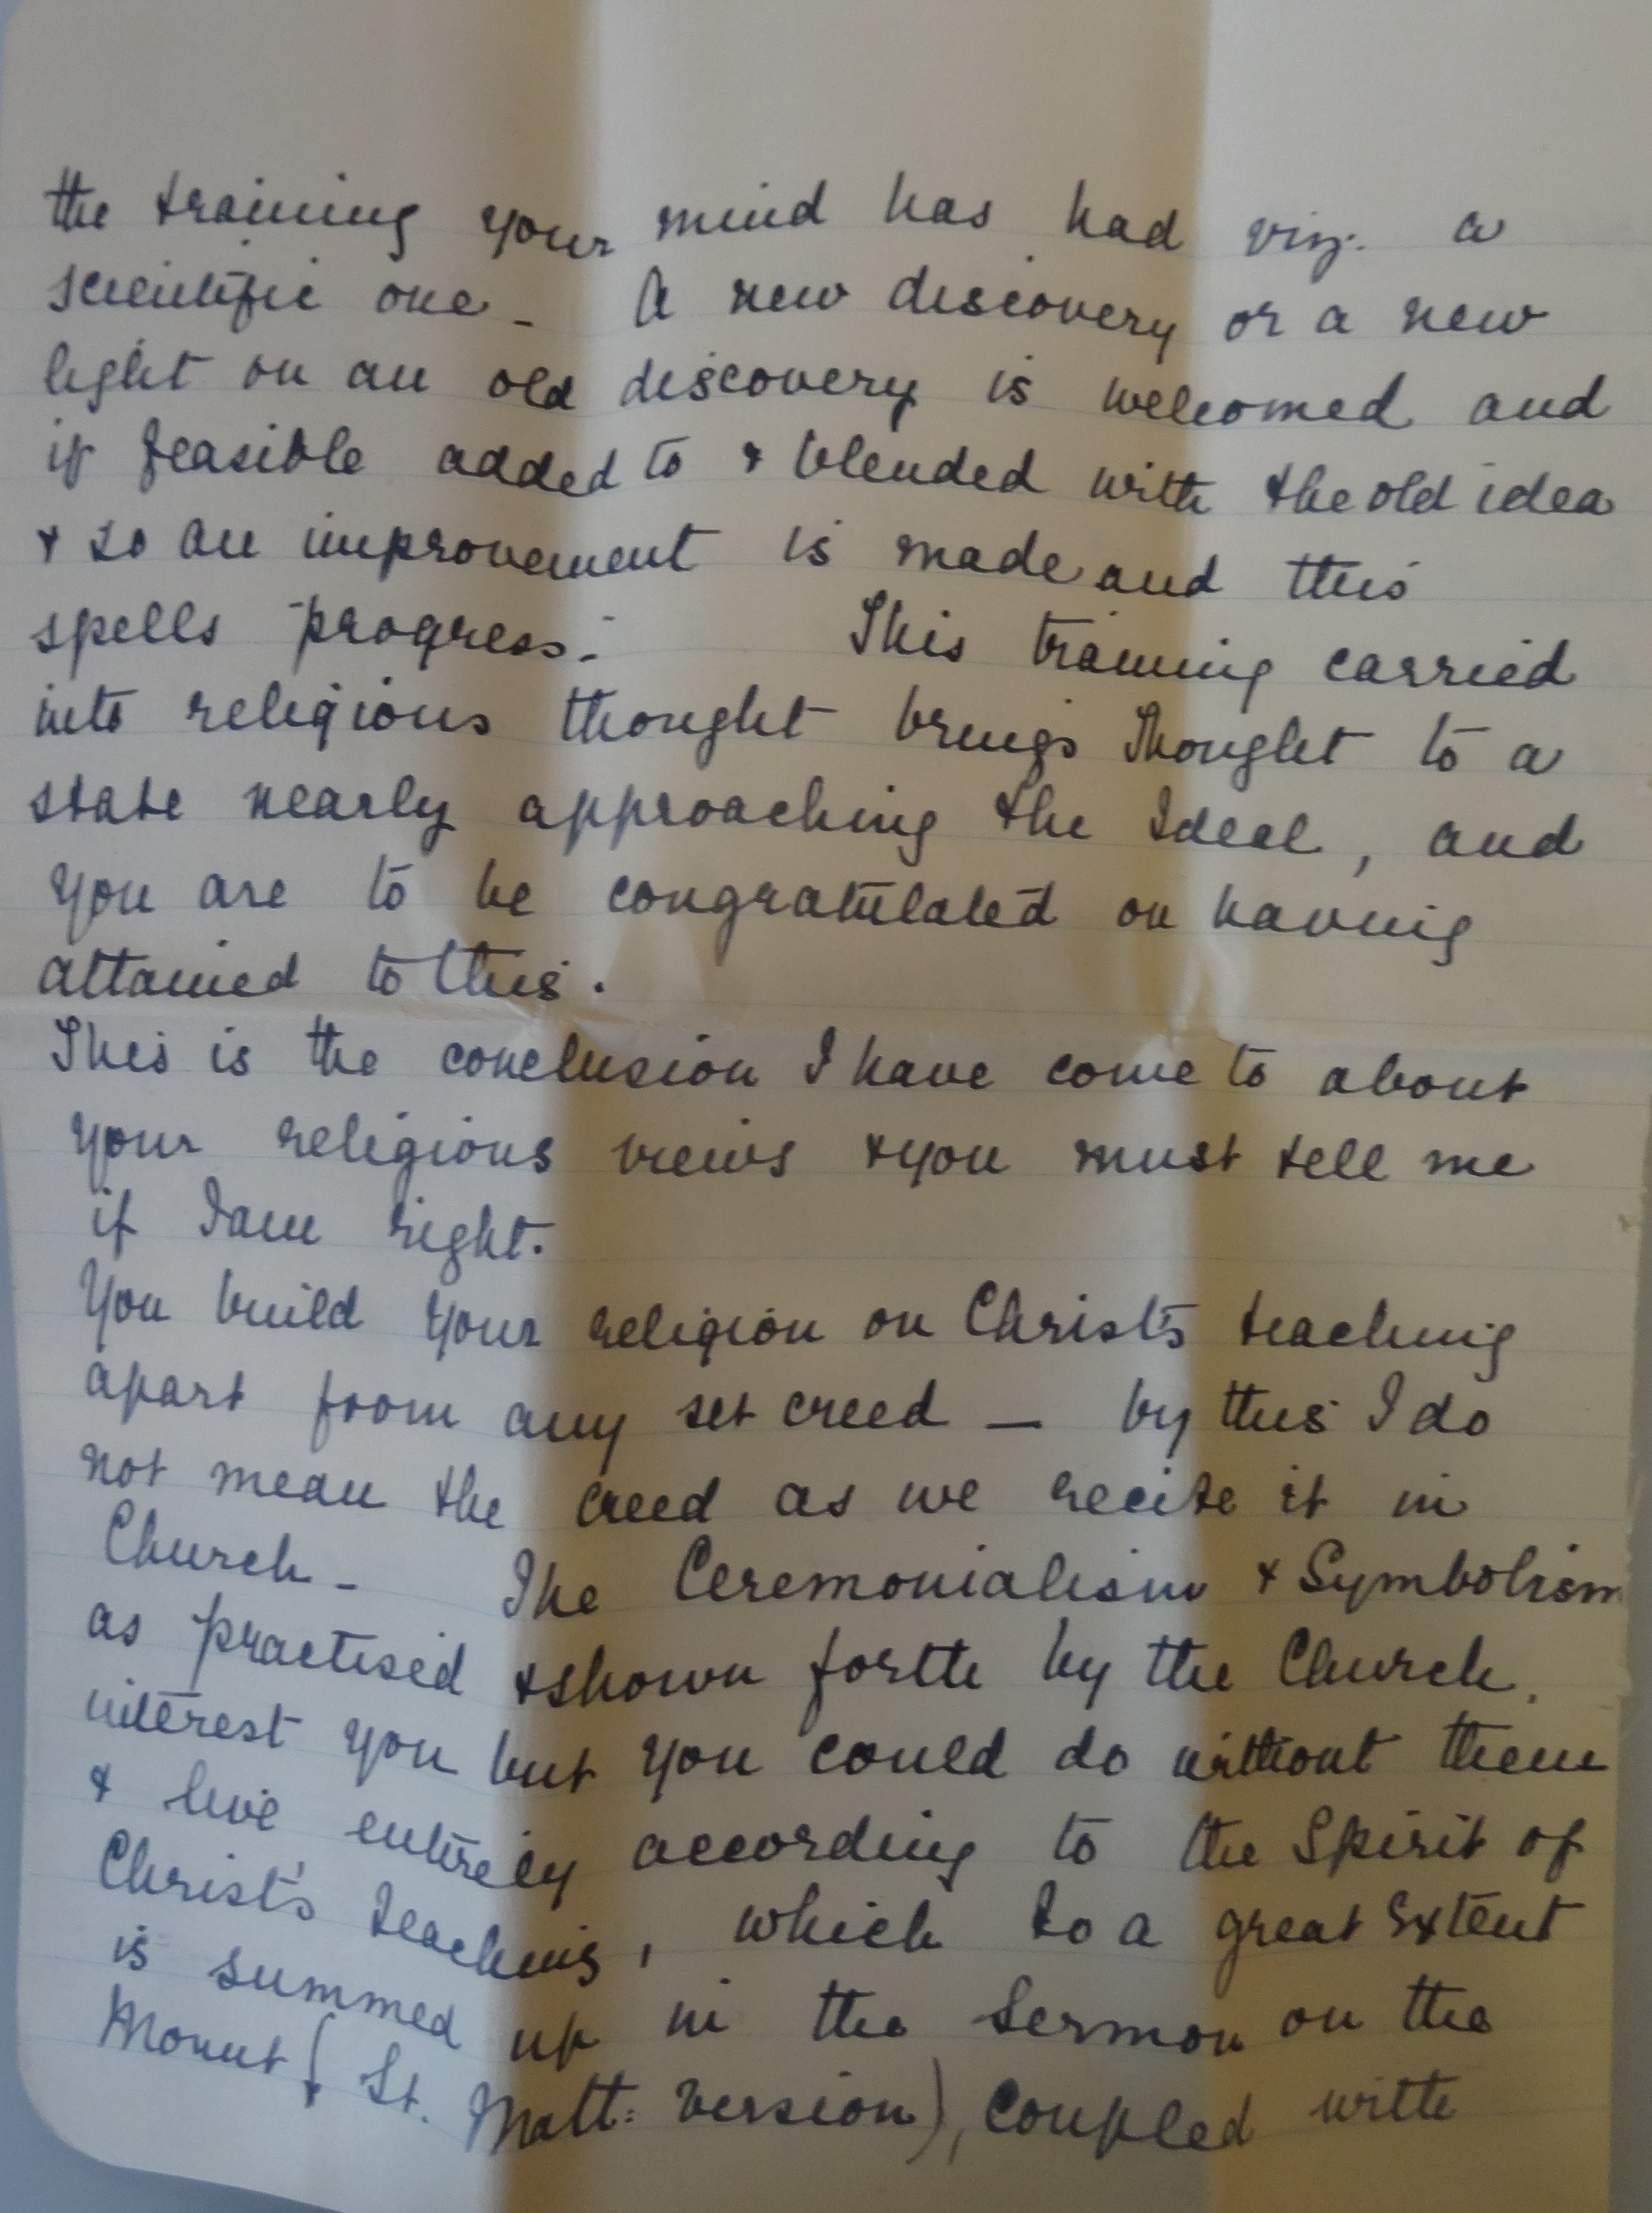 the training your mind has had viz. a
scientific one - A new discovery or a new
light on an old discovery is welcomed and
if feasible added to & blended with the old idea
& so an improvement is made and this
spells "progress". This training carried
into religious thought brings thought to a
state nearly approaching the Ideal, and
you are to be congratulated on having
attained to this.
This is the conclusion I have come to about
your religious views & you must tell me
if I am right.
You build your religion on Christ's teaching
apart from any set creed — by this I do
not mean the creed as we recite it in
Church - The Ceremonialism & Symbolism
as practised & shown forth by the Church,
interest you but you could do without them
& live entirely according to the Spirit of
Christ's teaching, which to a great extent
is summed up in the Sermon on the
Mount (St. Matt: version), coupled with